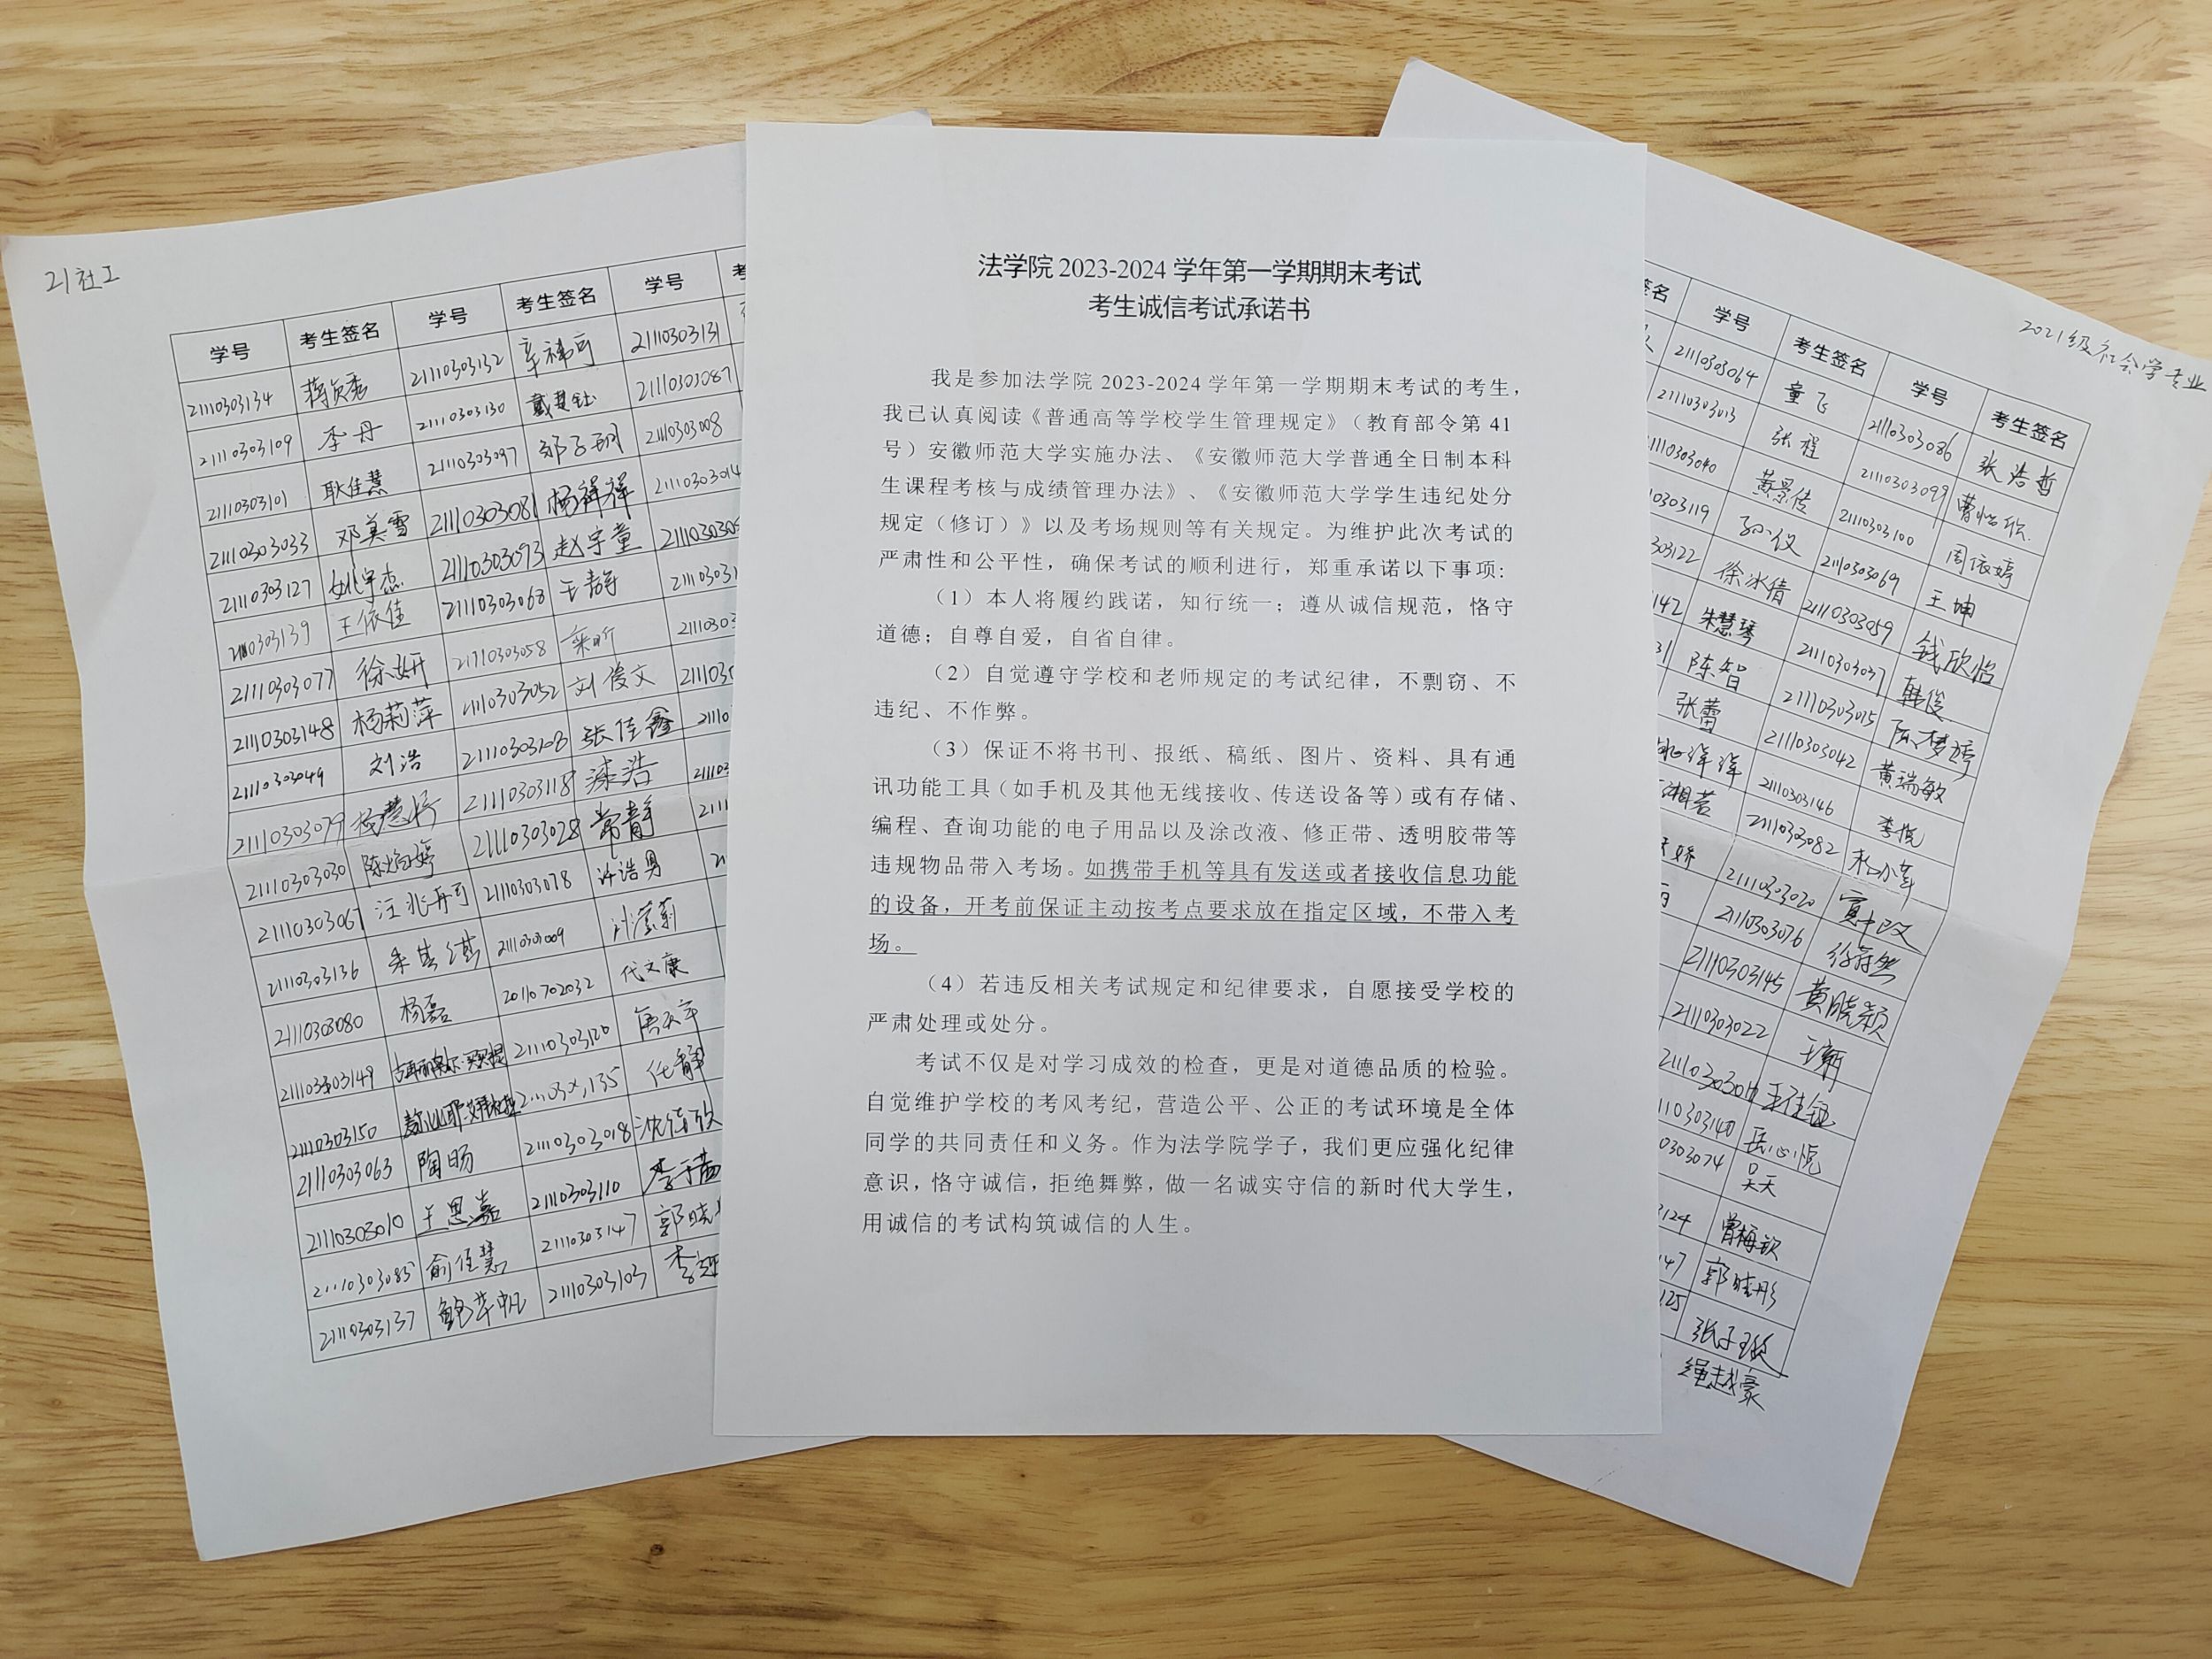 21社工
学号 考生签名 学号 考生签名 学号
21110303134 蒋贠秀 21110303132 21110303131
21110303109 李丹 21110303130 21110303087
21110303101 耿佳慧 21110303097 邹子珊 2111030308
21110303033 邓美雪 21110303081 杨祥祥 21110303014
21110303127 姚宇杰 21110303093 赵宇童
21110303139 王依佳 21110303068 王静
21110303077 徐妍 21110303058 栾昕
21110303148 杨莉萍 21110303052 刘俊文
21110303049 刘浩 21110303108 张佳鑫
21110303079 杨慧婷 21110303118 漆浩
21110303030 21110303028 常静
21110303067 汪兆再可 21110303078 许浩男
21110303136 21110303009 刘滢莉
21110303080 杨磊 20110702032 代文康
21110303149 21110303120
21110303150 任静
21110303063 陶旸 21110303018
21110303010 王思嘉 21110303110
21110303085 俞佳慧 21110303147 郭晓
21110303137 21110303103
法学院 2023-2024 学年第一学期期末考试
考生诚信考试承诺书
我是参加法学院 2023-2024 学年第一学期期末考试的考生，
我已认真阅读《普通高等学校学生管理规定》（教育部令第 41
号）安徽师范大学实施办法、《安徽师范大学普通全日制本科
生课程考核与成绩管理办法》、《安徽师范大学学生违纪处分
规定（修订）》以及考场规则等有关规定。为维护此次考试的
严肃性和公平性，确保考试的顺利进行，郑重承诺以下事项：
（1）本人将履约践诺，知行统一；遵从诚信规范，恪守
道德；自尊自爱，自省自律。
（2）自觉遵守学校和老师规定的考试纪律，不剽窃、不
违纪、不作弊。
（3）保证不将书刊、报纸、稿纸、图片、资料、具有通
讯功能工具（如手机及其他无线接收、传送设备等）或有存储、
编程、查询功能的电子用品以及涂改液、修正带、透明胶带等
违规物品带入考场。如携带手机等具有发送或者接收信息功能
的设备，开考前保证主动按考点要求放在指定区域，不带入考
场。
（4）若违反相关考试规定和纪律要求，自愿接受学校的
严肃处理或处分。
考试不仅是对学习成效的检查，更是对道德品质的检验。
自觉维护学校的考风考纪，营造公平、公正的考试环境是全体
同学的共同责任和义务。作为法学院学子，我们更应强化纪律
意识，恪守诚信，拒绝舞弊，做一名诚实守信的新时代大学生，
用诚信的考试构筑诚信的人生。
2021级社会学专业
签名 学号 考生签名 学号 考生签名
21110303064 童飞 21110303086 张浩哲
21110303013 张程 21110303099
黄景传 21110303100 周依婷
孙仪 21110303069 王坤
徐冰倩 21110303059 钱欣怡
朱慧琴 21110303037 韩俊
陈智 21110303015 陈梦婷
张蕾 21110303042 黄瑞敏
21110303146 李悦
湘芸 2111033082 杜小宰
21110303020
21110303076
21110303145 黄晓颖
21110303022
王佳钰
岳心悦
0303074 吴天
124 曾梅钦
147 郭晓彤
125 张子璇
绳越豪